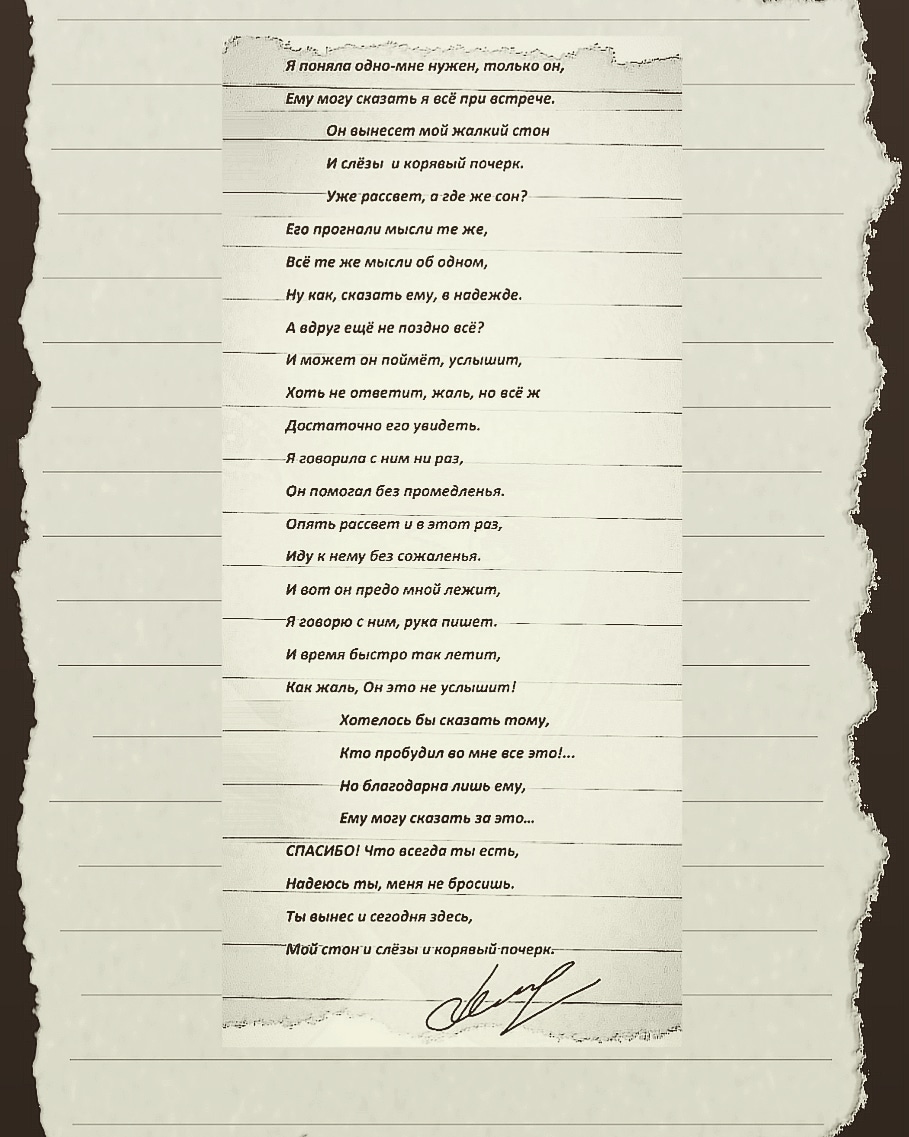 Я поняла одно-мне нужен, только он,
Ему могу сказать я всё при встрече.
Он вынесет мой жалкий стон
И слёзы и корявый почерк.
Уже рассвет, а где же сон?
Его прогнали мысли те же,
Всё те же мысли об одном,
Ну как, сказать ему, в надежде.
А вдруг ещё не поздно всё?
И может он поймёт, услышит,
Хоть не ответит, жаль, но всё ж
Достаточно его увидеть.
Я говорила с ним ни раз,
Он помогал без промедленья.
Опять рассвет и в этот раз,
Иду к нему без сожаленья.
И вот он предо мной лежит,
Я говорю с ним, рука пишет.
И время быстро так летит,
Как жаль, Он это не услышит!
Хотелось бы сказать тому,
Кто пробудил во мне все это!...
Но благодарна лишь ему,
Ему могу сказать за это...
СПАСИБО! Что всегда ты есть,
Надеюсь ты, меня не бросишь.
Ты вынес и сегодня здесь,
Мой стон и слёзы и корявый почерк.